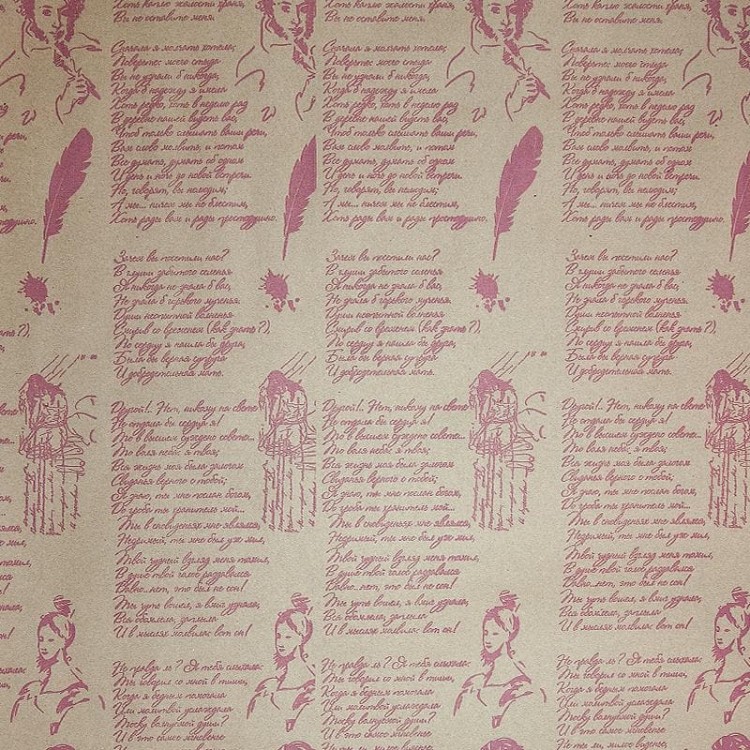 Хоть каплю жалости храня,
Вы не оставите меня.
Сначала я молчать хотела;
Поверьте: моего стыда
Вы не узнали б никогда,
Когда б надежду я имела
Хоть редко, хоть в неделю раз
В деревне нашей видеть вас,
Чтоб только слышать ваши речи,
Вам слово молвить, и потом
Все думать, думать об одном
И день и ночь до новой встречи.
Но, говорят, вы нелюдим;
А мы... ничем мы не блестим,
Хоть вам и рады простодушно.
Зачем вы посетили нас?
В глуши забытого селенья
Я никогда не знала б вас,
Не знала б горького мученья.
Души неопытной волненья
Смирив со временем (как знать?),
По сердцу я нашла бы друга,
Была бы верная супруга
И добродетельная мать.
Другой!.. Нет, никому на свете
Не отдала бы сердца я!
То в вышнем суждено совете...
То воля неба: я твоя;
Вся жизнь моя была залогом
Свиданья верного с тобой;
Я знаю, ты мне послан богом,
До гроба ты хранитель мой...
Ты в сновиденьях мне являлся,
Незримый, ты мне был уж мил,
Твой чудный взгляд меня томил,
В душе твой голос раздавался
Давно...нет, это был не сон!
Ты чуть вошел, я вмиг узнала,
Вся обомлела, запылала
И в мыслях молвила: вот он!
Не правда ль? Я тебя слыхала:
Ты говорил со мной в тиши,
Когда я бедным помогала
Или молитвой услаждала
Тоску волнуемой души?
И в это самое мгновенье
Не ты ли, милое виденье,